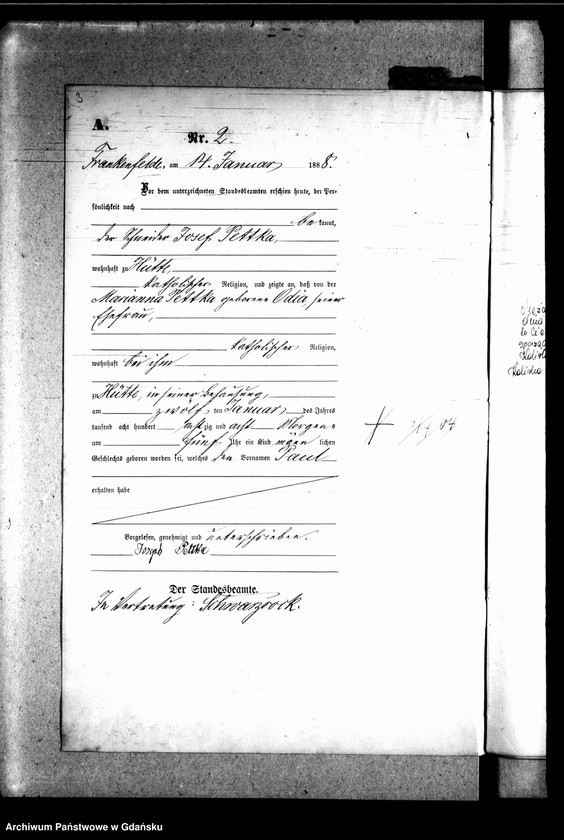 3
A.
Nr. 2.
Frankenfelde, am 14. Januar 1888.
Vor dem unterzeichneten Standesbeamten erschien heute, der Per-
sönlichkeit nach
be kannt,
der Schneider Josef Pettka,
wohnhaft zu Hütte,
katholischer Religion, und zeigte an, daß von der
Marianna Pettka geborene Odia seiner
Ehefrau,
katholischer Religion,
wohnhaft bei ihm
zu Hütte, in seiner Behausung,
am zwölf ten Januar des Jahres
tausend acht hundert acht zig und acht Morgens
um fünf Uhr ein Kind männ lichen
Geschlechts geboren worden sei, welches den Vornamen Paul
erhalten habe
Vorgelesen, genehmigt und unterschrieben.
Joseph Pettka
Der Standesbeamte.
In Vertretung: Schwarzrock.
Archiwum Państwowe w Gdańsku